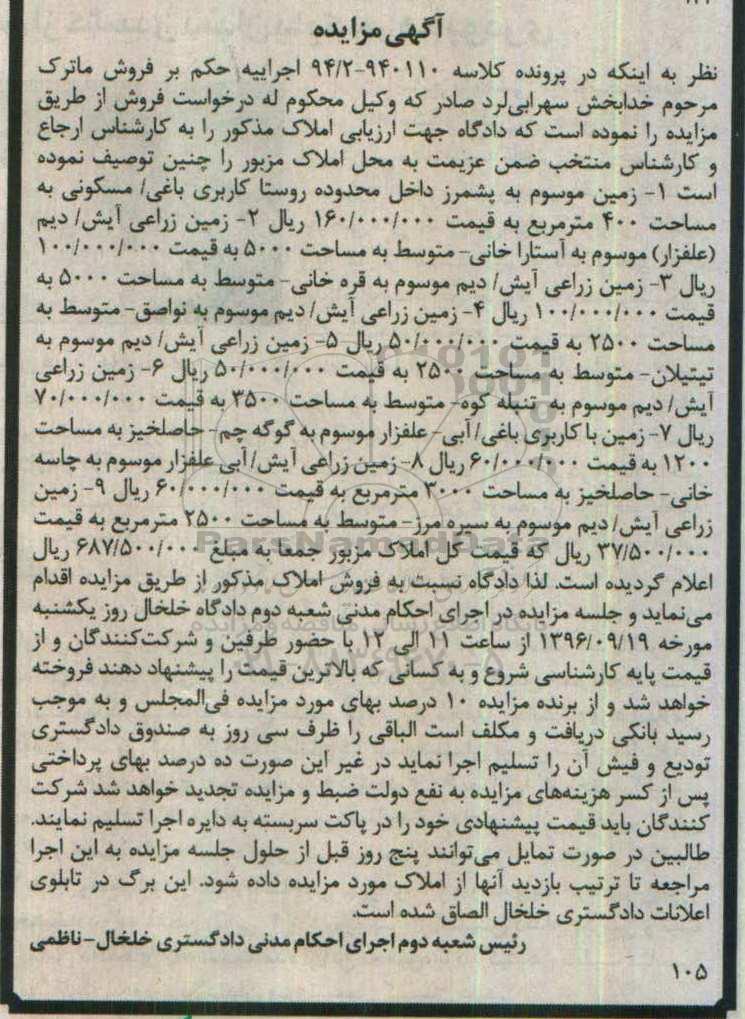 آگهی مزایده
نظر به اینکه در پرونده کلاسه ۹۴۰۱۱۰-۹۴/۲ اجراییه حکم بر فروش ماترک
مرحوم خدابخش سهرابی‌لرد صادر که وکیل محکوم له درخواست فروش از طریق
مزایده را نموده است که دادگاه جهت ارزیابی املاک مذکور را به کارشناس ارجاع
و کارشناس منتخب ضمن عزیمت به محل املاک مزبور را چنین توصیف نموده
است ۱- زمین موسوم به پشمرز داخل محدوده روستا کاربری باغی/ مسکونی به
مساحت ۴۰۰ مترمربع به قیمت ۱۶۰/۰۰۰/۰۰۰ ریال ۲- زمین زراعی آیش/ دیم
(علفزار) موسوم به آستارا خانی- متوسط به مساحت ۵۰۰۰ به قیمت ۱۰۰/۰۰۰/۰۰۰
ریال ۳- زمین زراعی آیش/ دیم موسوم به قره خانی- متوسط به مساحت ۵۰۰۰ به
قیمت ۱۰۰/۰۰۰/۰۰۰ ریال ۴- زمین زراعی آیش/ دیم موسوم به نواصق- متوسط به
مساحت ۲۵۰۰ به قیمت ۵۰/۰۰۰/۰۰۰ ریال ۵- زمین زراعی آیش/ دیم موسوم به
تیتیلان- متوسط به مساحت ۲۵۰۰ به قیمت ۵۰/۰۰۰/۰۰۰ ریال ۶- زمین زراعی
آیش/ دیم موسوم به تنبله کوه- متوسط به مساحت ۳۵۰۰ به قیمت ۷۰/۰۰۰/۰۰۰
ریال ۷- زمین با کاربری باغی/ آبی- علفزار موسوم به گوگه چم- حاصلخیز به مساحت
۱۲۰۰ به قیمت ۶۰/۰۰۰/۰۰۰ ریال ۸- زمین زراعی آیش/ آبی علفزار موسوم به چاسه
خانی- حاصلخیز به مساحت ۳۰۰۰ مترمربع به قیمت ۶۰/۰۰۰/۰۰۰ ریال ۹- زمین
زراعی آیش/ دیم موسوم به سیره مرز- متوسط به مساحت ۲۵۰۰ مترمربع به قیمت
۳۷/۵۰۰/۰۰۰ ریال که قیمت کل املاک مزبور جمعا به مبلغ ۶۸۷/۵۰۰/۰۰۰ ریال
اعلام گردیده است. لذا دادگاه نسبت به فروش املاک مذکور از طریق مزایده اقدام
می‌نماید و جلسه مزایده در اجرای احکام مدنی شعبه دوم دادگاه خلخال روز یکشنبه
مورخه ۱۳۹۶/۰۹/۱۹ از ساعت ۱۱ الی ۱۲ با حضور طرفین و شرکت‌کنندگان و از
قیمت پایه کارشناسی شروع و به کسانی که بالاترین قیمت را پیشنهاد دهند فروخته
خواهد شد و از برنده مزایده ۱۰ درصد بهای مورد مزایده فی‌المجلس و به موجب
رسید بانکی دریافت و مکلف است الباقی را ظرف سی روز به صندوق دادگستری
تودیع و فیش آن را تسلیم اجرا نماید در غیر این صورت ده درصد بهای پرداختی
پس از کسر هزینه‌های مزایده به نفع دولت ضبط و مزایده تجدید خواهد شد شرکت
کنندگان باید قیمت پیشنهادی خود را در پاکت سربسته به دایره اجرا تسلیم نمایند.
طالبین در صورت تمایل می‌توانند پنج روز قبل از حلول جلسه مزایده به این اجرا
مراجعه تا ترتیب بازدید آنها از املاک مورد مزایده داده شود. این برگ در تابلوی
اعلانات دادگستری خلخال الصاق شده است.
رئیس شعبه دوم اجرای احکام مدنی دادگستری خلخال- ناظمی
۱۰۵
ParsNamadData